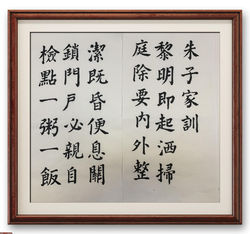 朱子家訓
黎明即起洒掃
庭除要內外整
潔既昏便息關
鎖門戶必親自
檢點一粥一飯